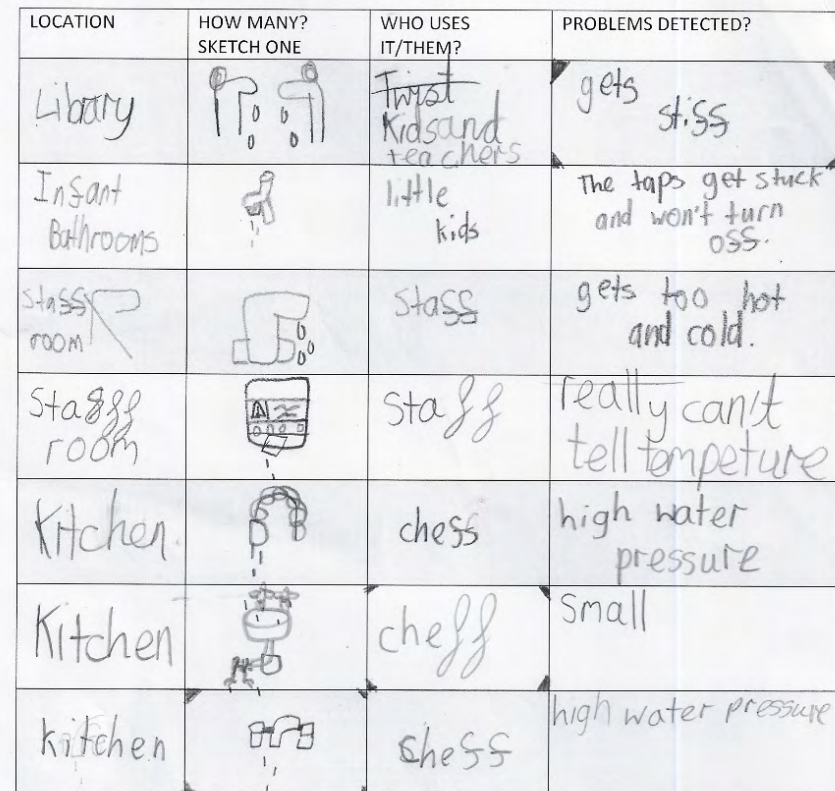 LOCATION
HOW MANY?
SKETCH ONE
WHO USES
IT/THEM?
PROBLEMS DETECTED?
Libary
Twist
Kids and
teachers
gets
stiff
Infant
Bathrooms
little
kids
The taps get stuck
and won't turn
off.
Staff
room
Staff
gets too hot
and cold.
Staff
room
Staff
really can't
tell tempeture
Kitchen
cheff
high water
pressure
Kitchen
cheff
Small
kitchen
cheff
high water pressure